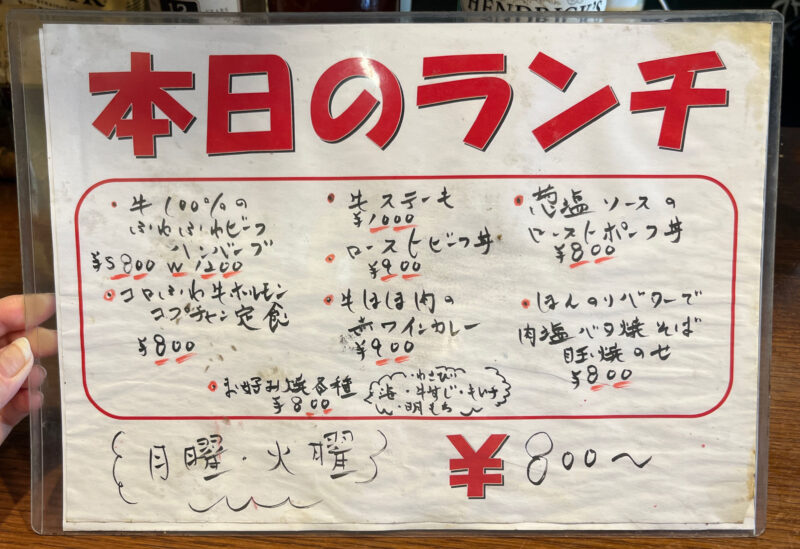 HENDRICK'S
本日のランチ
・牛100%の
ふわふわビーフ
ハンバーグ
¥S800 W1200
・コロふわ牛ホルモン
コプチャン定食
¥800
・牛ステーキ
¥1000
・ローストビーフ丼
¥900
・牛ほほ肉の
赤ワインカレー
¥900
・葱塩ソースの
ローストポーク丼
¥800
・ほんのりバターで
肉塩バタ焼そば
豚焼のせ
¥800
・お好み焼各種
¥800
・わさび
海・牛すじ・もいチ
・明もち
月曜・火曜
¥800〜